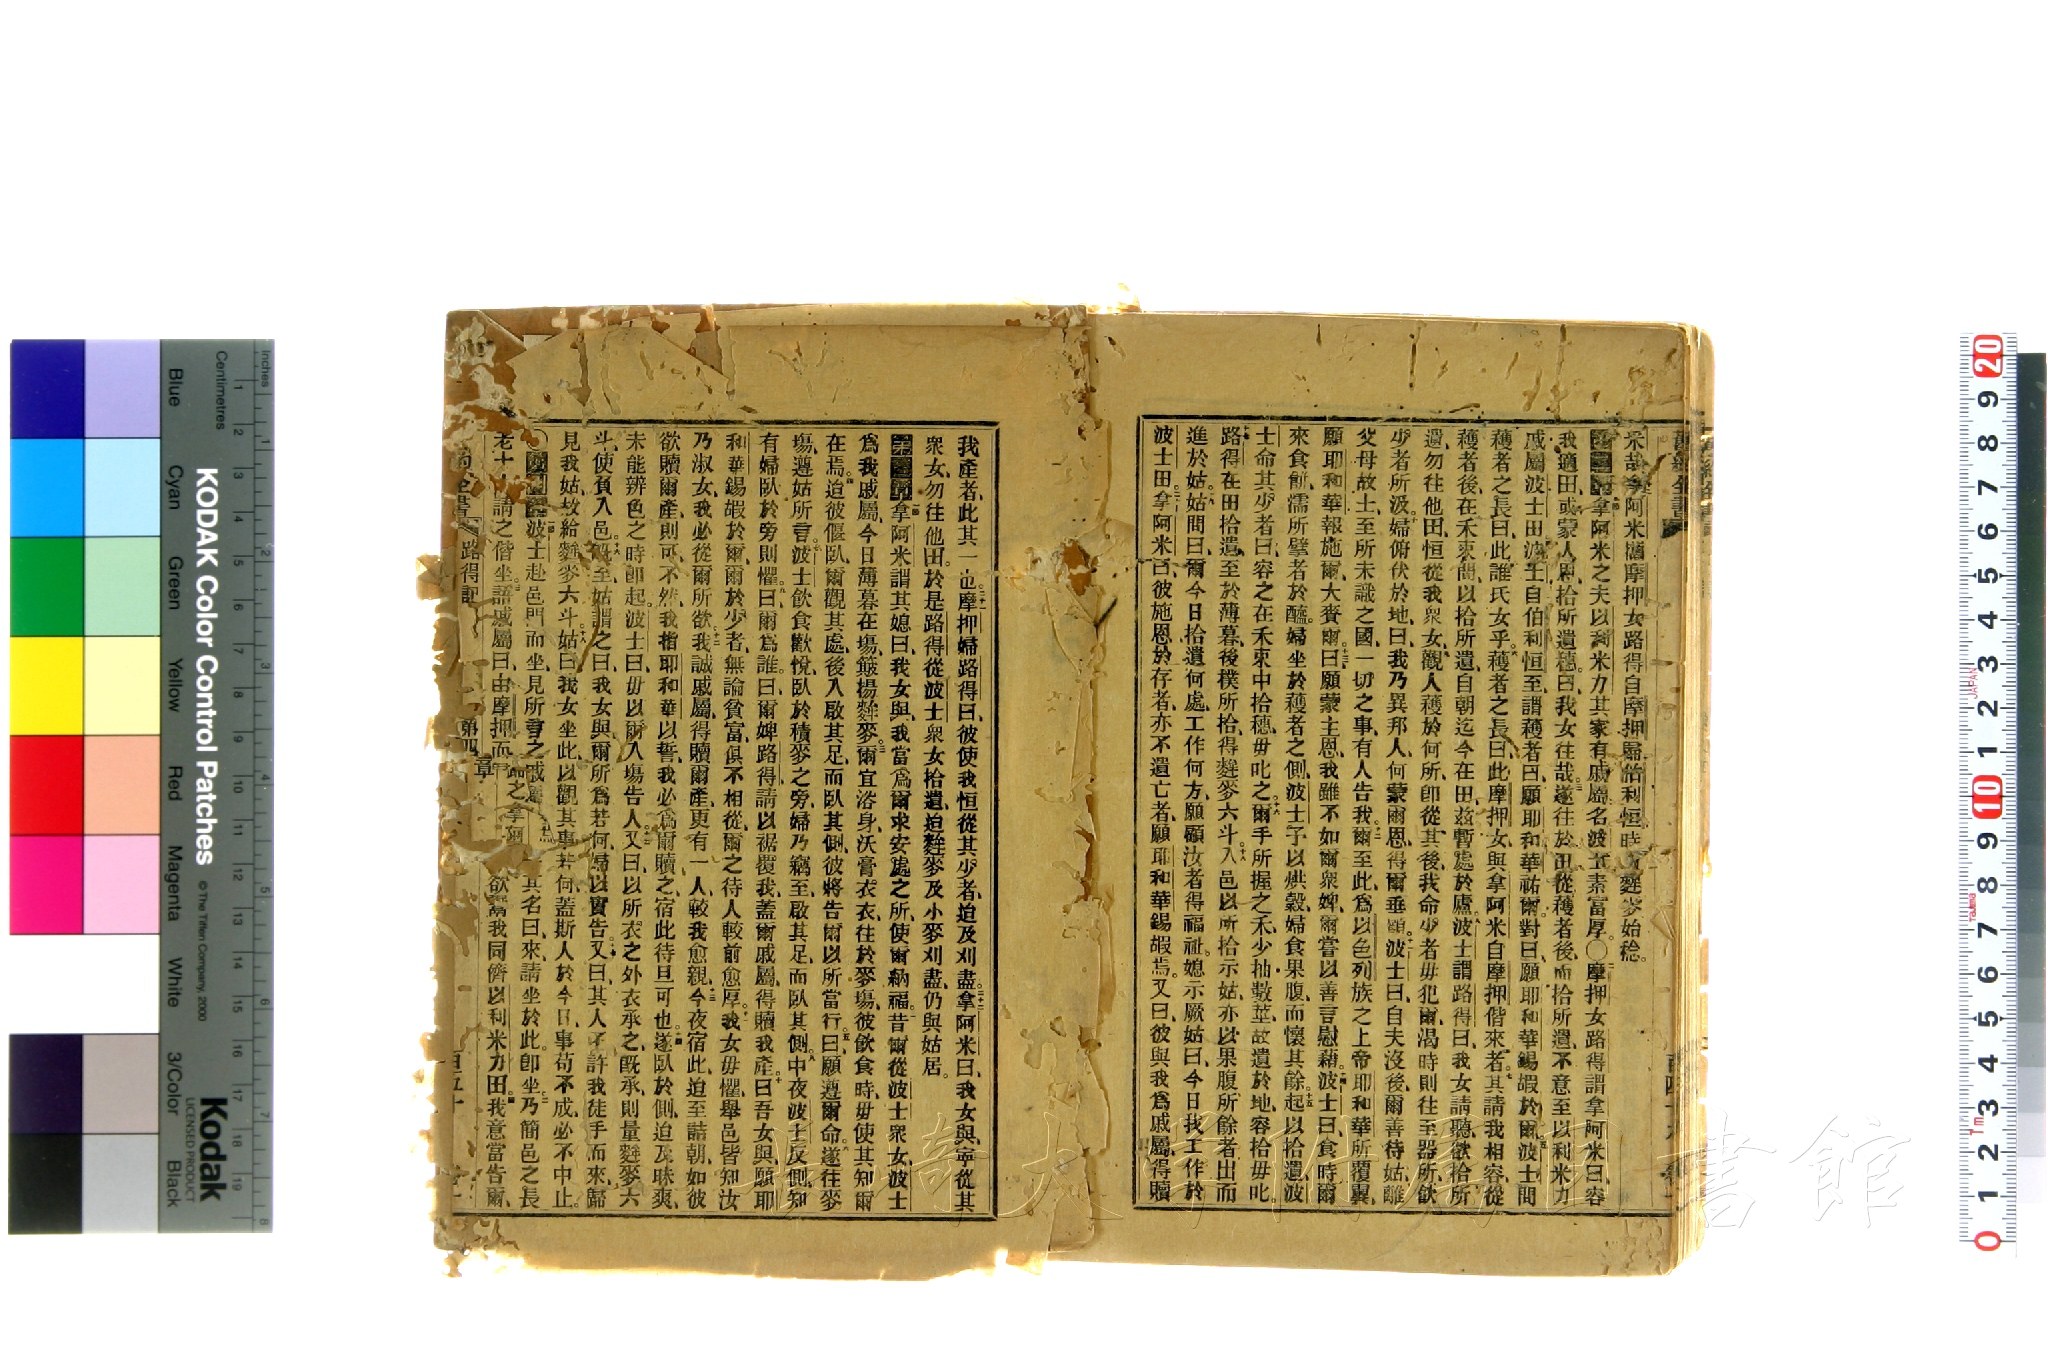 米哉拿阿米攜摩押女路得自摩押歸伯利恒時麰麥始稔
拿阿米之夫以利米力其家有戚屬名波士素富厚〇摩押女路得謂拿阿米曰容
我適田或蒙人恩拾所遺穗曰我女往哉遂往於田從穫者後而拾所遺不意至以利米力
戚屬波士田波士自伯利恒至謂穫者曰願耶和華祐爾對曰願耶和華錫嘏於爾波士問
穫者之長曰此誰氏女乎穫者之長曰此摩押女與拿阿米自摩押偕來者其請我相容從
穫者後在禾束間以拾所遺自朝迄今在田茲暫處於廬波士謂路得曰我女請聽欲拾所
遺勿往他田恒從我衆女觀人穫於何所卽從其後我命少者毋犯爾渴時則往至器所飲
少者所汲婦俯伏於地曰我乃異邦人何蒙爾恩得爾垂顧波士曰自夫沒後爾善待姑離
父母故土至所未識之國一切之事有人告我爾至此爲以色列族之上帝耶和華所覆翼
願耶和華報施爾大賚爾曰願蒙主恩我雖不如爾衆婢爾嘗以善言慰藉波士曰食時爾
來食餅濡所擘者於醯婦坐於穫者之側波士予以烘穀婦食果腹而懷其餘起以拾遺波
士命其少者曰容之在禾束中拾穗毋叱之爾手所握之禾少抽數莖故遺於地容拾毋叱
路得在田拾遺至於薄暮後樸所拾得麰麥六斗入邑以所拾示姑亦以果腹所餘者出而
進於姑姑問曰爾今日拾遺何處工作何方願顧汝者得福祉媳示厥姑曰今日我工作於
波士田拿阿米曰彼施恩於存者亦不遺亡者願耶和華錫嘏焉又曰彼與我爲戚屬得贖
我產者此其一也摩押婦路得曰彼使我恒從其少者迨及刈盡拿阿米曰我女與寧從其
衆女勿往他田於是路得從波士衆女拾遺迨麰麥及小麥刈盡仍與姑居
第三章拿阿米謂其媳曰我女與我當爲爾求安處之所使爾納福昔爾從波士衆女波士
爲我戚屬今日薄暮在塲簸揚麰麥爾宜浴身沃膏衣衣往於麥塲彼飲食時毋使其知爾
在焉迨彼偃臥爾觀其處後入啟其足而臥其側彼將告爾以所當行曰願遵爾命遂往麥
塲遵姑所言波士飲食歡悅臥於積麥之旁婦乃竊至啟其足而臥其側中夜波士反側知
有婦臥於旁則懼曰爾爲誰曰爾婢路得請以裾覆我蓋爾戚屬得贖我產曰吾女與願耶
和華錫嘏於爾爾於少者無論貧富俱不相從爾之待人較前愈厚我女毋懼舉邑皆知汝
乃淑女我必從爾所欲我誠戚屬得贖爾產更有一人較我愈親今夜宿此迨至詰朝如彼
欲贖爾產則可不然我指耶和華以誓我必爲爾贖之宿此待旦可也遂臥於側迨及昧爽
未能辨色之時卽起波士曰毋以爾入塲告人又曰以所衣之外衣承之旣承則量麰麥六
斗使負入邑旣至姑謂之曰我女與爾所爲若何婦以實告又曰其人不許我徒手而來歸
見我姑故給麰麥六斗姑曰我女坐此以觀其事若何蓋斯人於今日事苟不成必不中止
〇波士赴邑門而坐見所言之戚屬 其名曰來請坐於此卽坐乃簡邑之長
老十 請之偕坐語戚屬曰由摩押而 之拿阿 欲鬻我同儕以利米力田我意當告爾
路得記 第四章